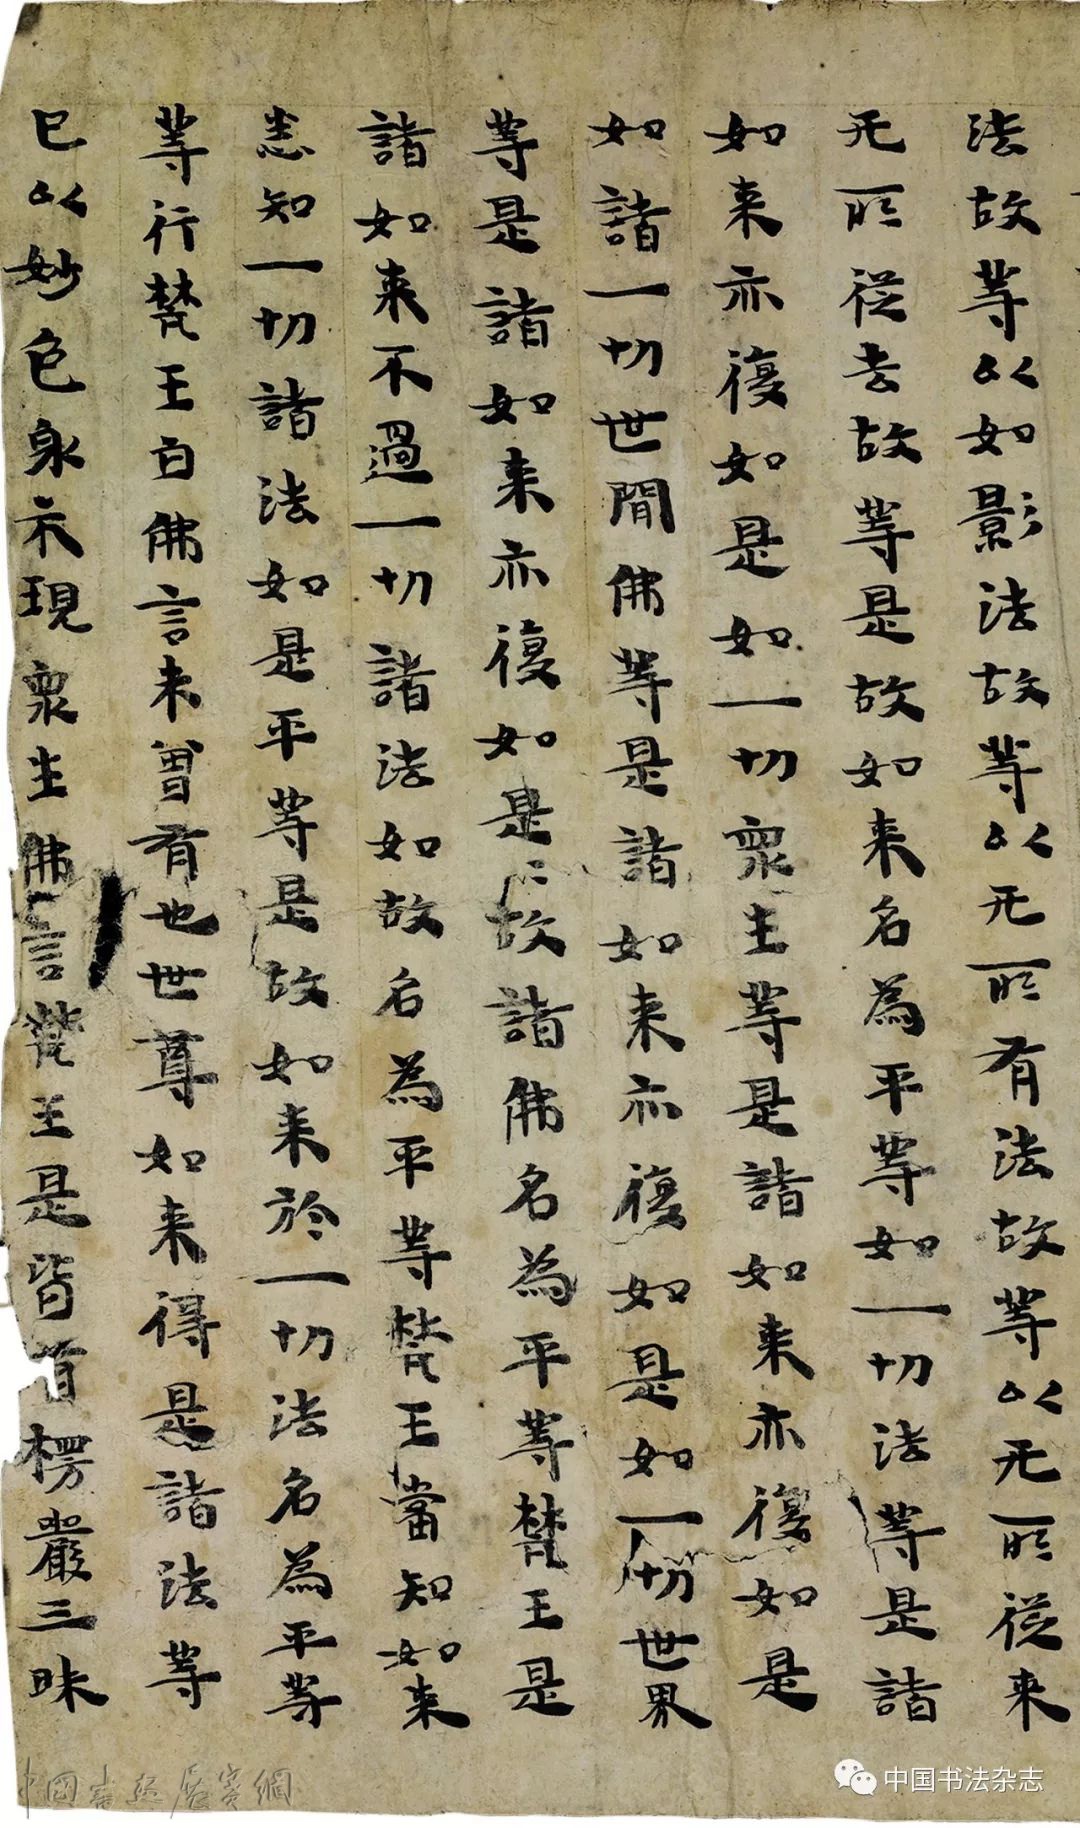 法故等以如影法故等以无所有法故等以无所從来
无所從去故等是故如来名為平等如一切法等是諸
如来亦復如是如一切衆生等是諸如来亦復如是
如諸一切世間佛等是諸如来亦復如是如一切世界
等是諸如来亦復如是是故諸佛名為平等梵王是
諸如来不過一切諸法如故名為平等梵王當知如来
悉知一切諸法如是平等是故如来於一切法名為平等
等行梵王白佛言未曾有也世尊如来得是諸法等
已以妙色身示現衆生佛言梵王是皆首楞嚴三昧
中国书法杂志